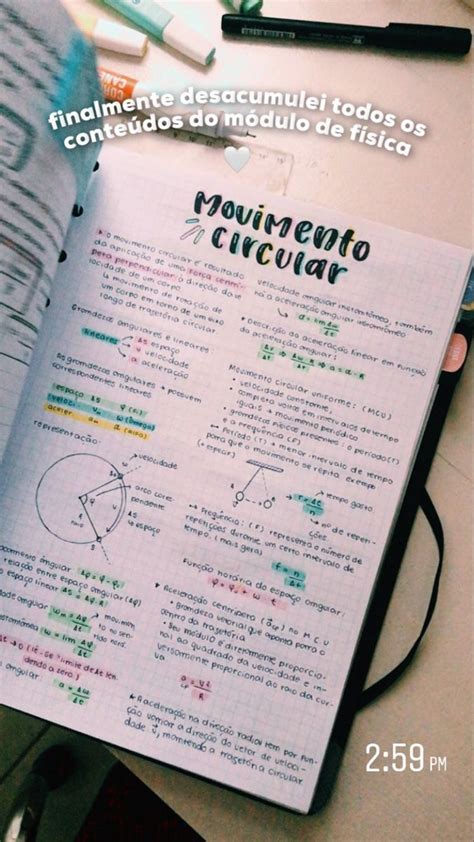 finalmente desacumulei todos os
conteúdos do módulo de física
movimento
circular
o movimento circular é resultado
da aplicação de uma força centrí-
peta perpendicular à direção da ve
locidade de um corpo
↳ movimento de rotação de
um corpo em torno de um eixo
longo de trajetória circular
Grandezas angulares e lineares
lineares
Δs espaço
v velocidade
a aceleração
As grandezas angulares → possuem
correspondentes lineares
espaço Δs φ (fi)
veloci. vm ω (ômega)
aceler. am α (alfa)
representação:
velocidade
arco corres-
pondente
Δs
↳ espaço
R
raio
φ
So
S
deslocamento angular Δφ = φ - φ₀
relação entre espaço angular (Δφ)
e espaço linear Δs = Δφ.R
ωm = Δφ/Δt → movimen
to no sen-
tido
ω = lim Δφ/Δt
Δt → 0 (lê-se "limite de Δt ten
dendo a zero)
angular α = Δω/Δt
velocidade angular instantânea, também
há a aceleração angular instantânea
α = lim Δω/Δt
• Descrição da aceleração linear em função
da aceleração angular:
Movimento circular uniforme: (MCU)
• velocidade constante,
completa volta em intervalos de tempo
iguais → movimento periódico
• grandezas físicas presentes: o período (T)
e a frequência (F)
↳ Período (T) → menor intervalo de tempo
para que o movimento se repita. exemplo
T = Δt/n
tempo gasto.
nº de repeti-
ções.
↳ Frequência: (F) representa o número de
repetições durante um certo intervalo de
tempo. (mais geral)
f = n/Δt
Função horária do espaço angular:
φ = φ₀ + ω . t
• Aceleração centrípeta (acp) no M.C.U
• Grandeza vetorial que aponta para o
centro da trajetória
• Seu módulo é diretamente proporcio-
nal ao quadrado da velocidade e in-
versamente proporcional ao raio da cur-
va
a = v²/R
A aceleração na direção radial tem por fun-
ção variar a direção do vetor de veloci-
dade v, mantendo a trajetória circular
2:59 PM